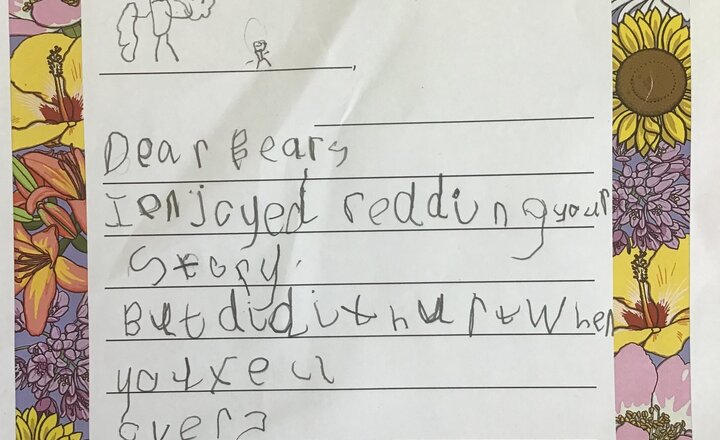 Dear Bears
I enjoyed redding your
Story.
But did it hurt When
you fell
over?